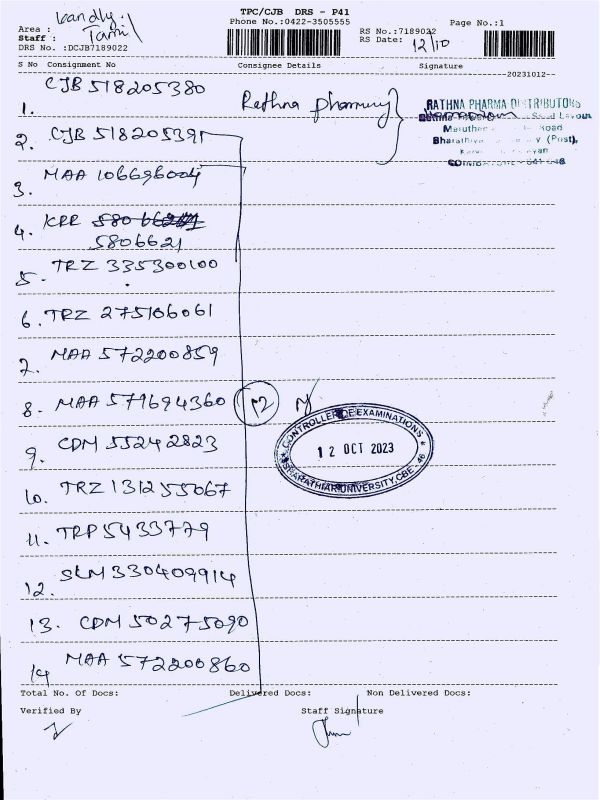 TPC/CJB DRS - P41
Phone No.:0422-3505555
Page No.:1
Area :
Staff : Tamil
DRS No. :DCJB7189022
RS No.:7189022
RS Date: 12/10
S No Consignment No Consignee Details Signature
20231012
1. CJB 518205380 Rathna pharmacy
RATHNA PHARMA DISTRIBUTORS
Road
(Post),
2. CJB 518205391
3. MAA 106696004
4. KRR
5806621
5. TRZ 335300100
6. TRZ 275106061
7. MAA 572200859
8. MAA 571694360 12
CONTROLLER OF EXAMINATIONS
12 OCT 2023
BHARATHIAR UNIVERSITY, CBE - 46
9. CDM 55242823
10. TRZ 131255067
11. TRP 5433779
12. SLM 330409914
13. CDM 50275090
14 MAA 572200860
Total No. Of Docs: Delivered Docs: Non Delivered Docs:
Verified By Staff Signature